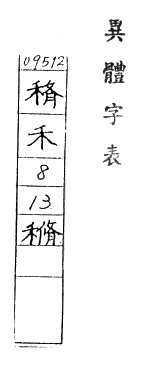 異體字表
09512
禾
8
13